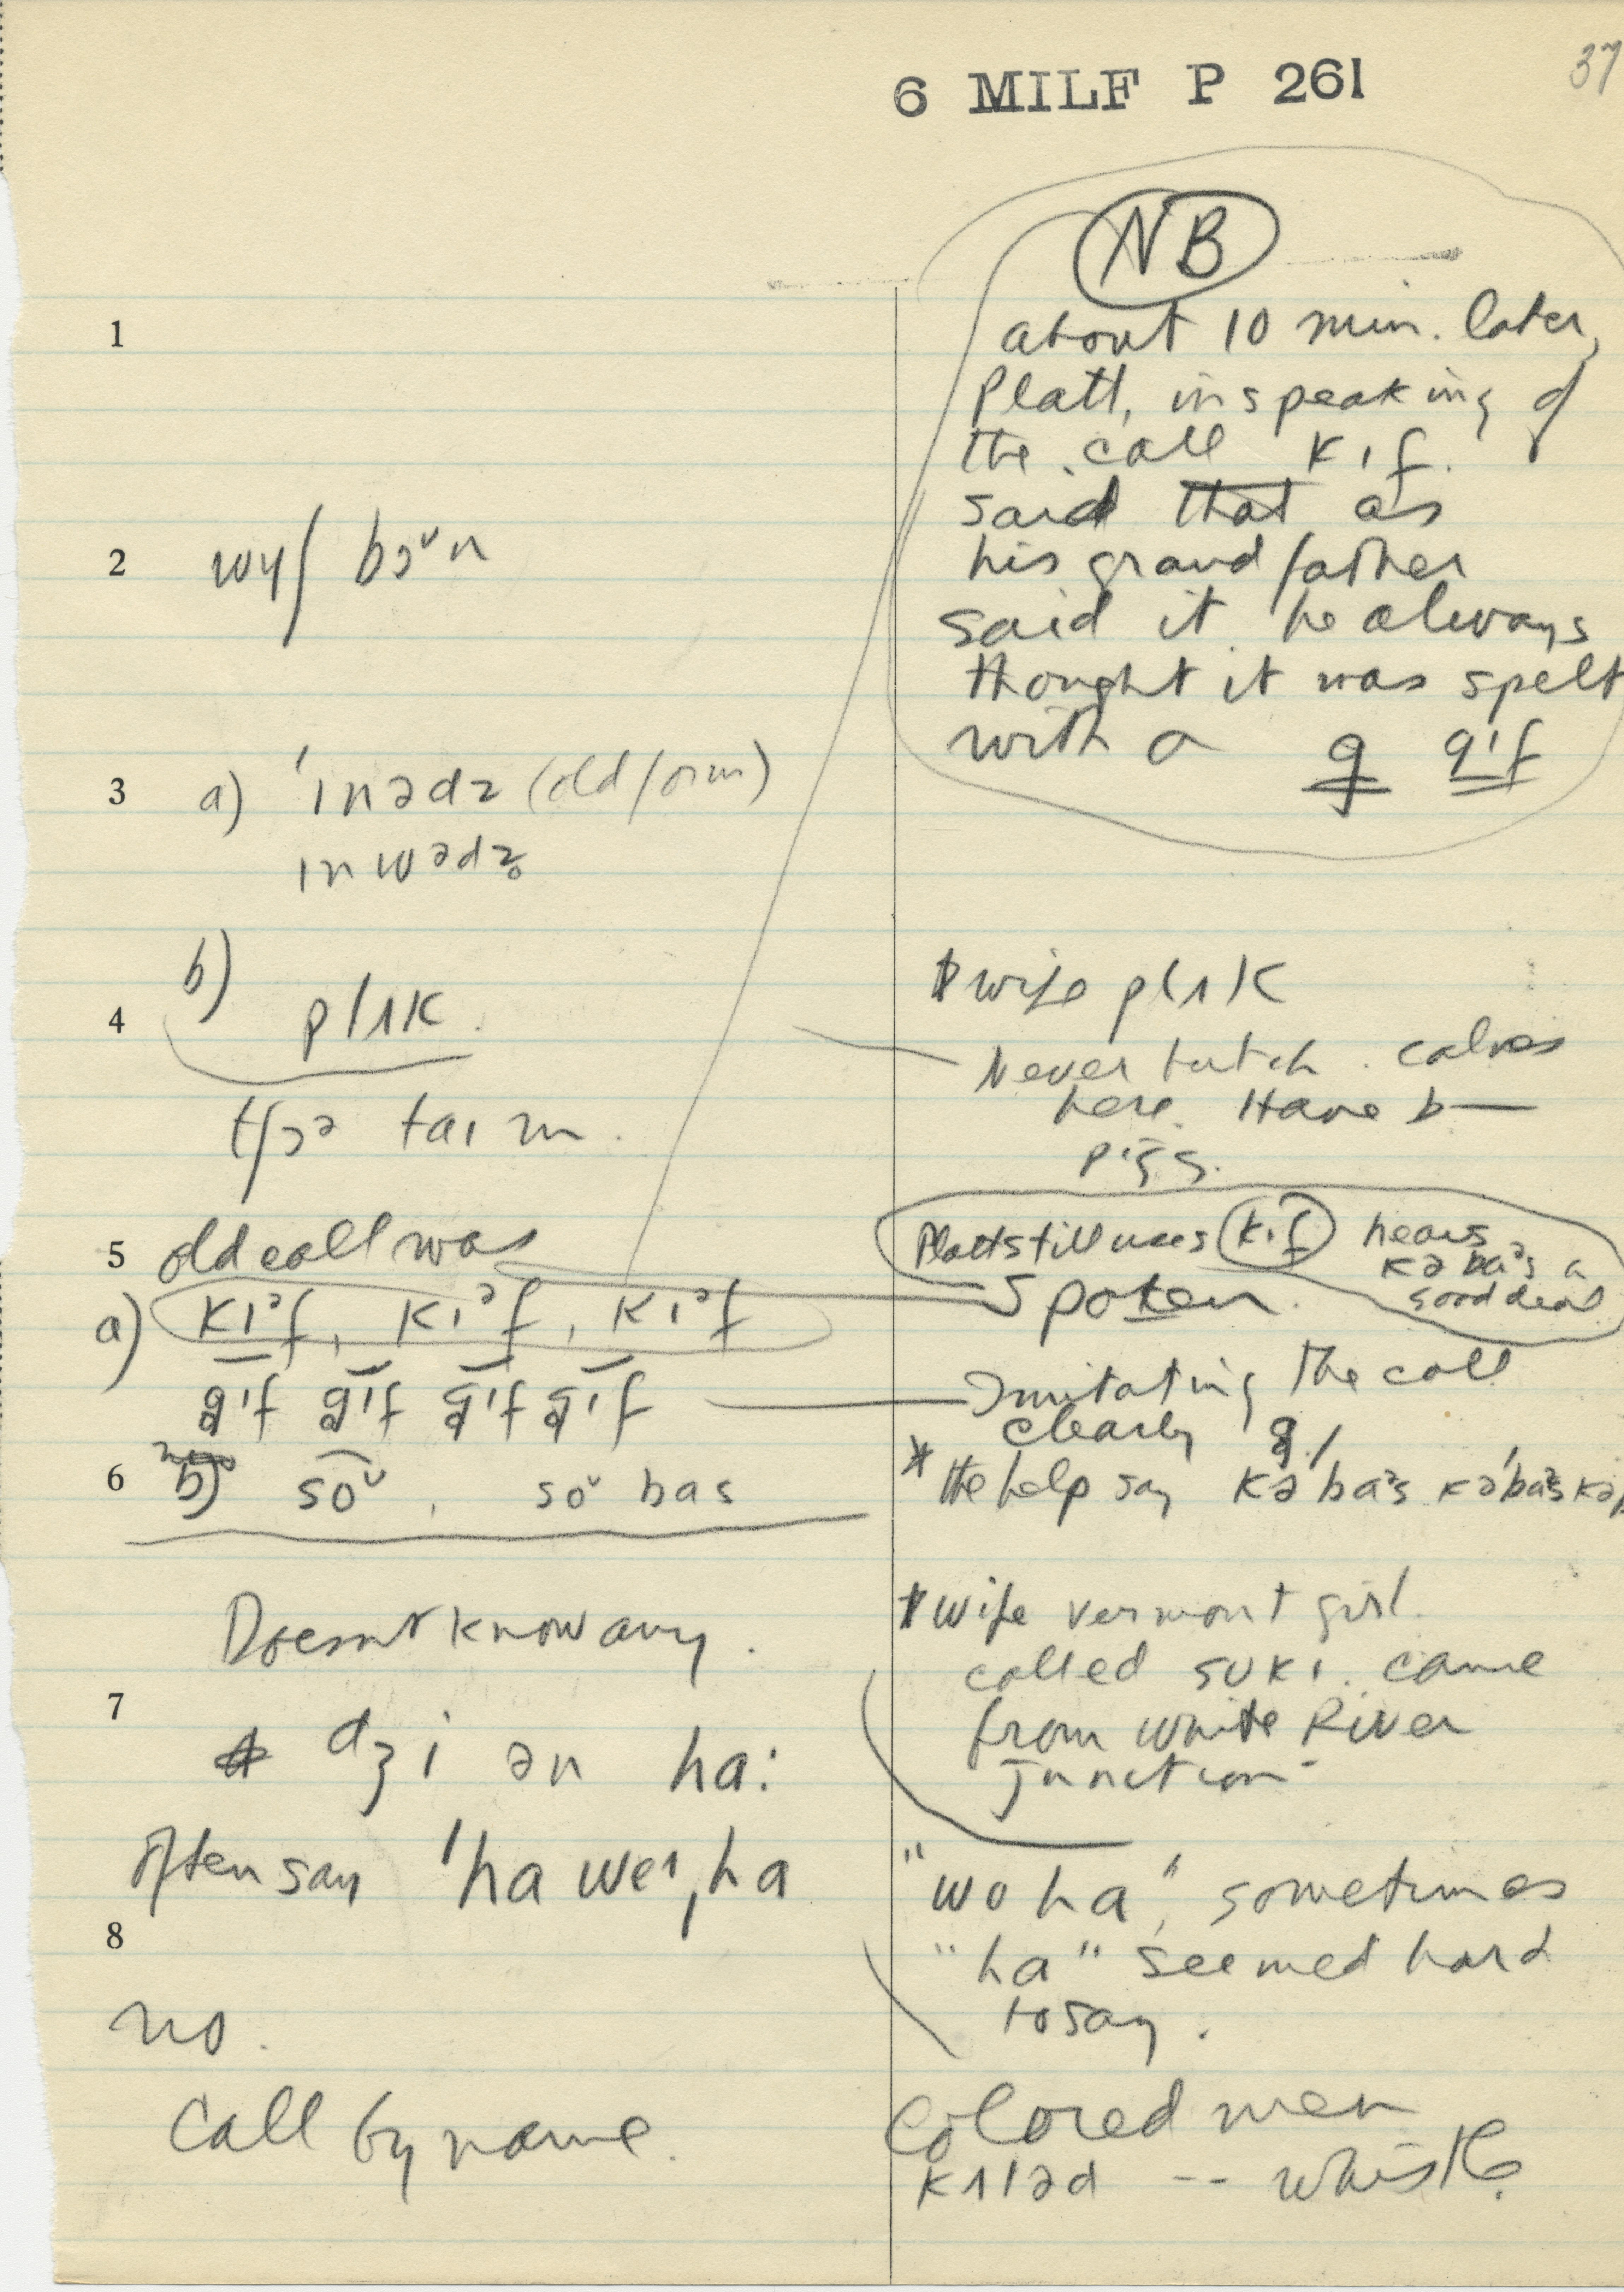 6 MILF P 261
37
NB
about 10 min. later,
Platt, in speaking of
the call kɪf.
said that as
his grandfather
said it he always
thought it was spelt
with a g gɪf
1
2 wɪʃ bɔᵛn
3 a) 'ɪnədz (old form)
ɪnwədz
b)
4 plʌk.
tʃɔᵊ taɪm.
wife plʌk
Never butch. calves
here. Have b—
pigs.
5 old call was
a) kɪᵊf, kɪᵊf, kɪᵊf
gɪf gɪf gɪf gɪf
6 b) soᵛ, soᵛ bas
Platt still uses kɪf hears
kəbaᵊs a
good deal
Spoken.
Imitating the call
clearly g!
* the help say kə'baᵊs kə'baᵊs
Doesnt know any.
wife Vermont girl.
called sukɪ. came
from White River
Junction
7 dʒi ən ha:
often say 'ha weɪ, ha
"wo ha", sometimes
"ha" seemed hard
to say.
8
no.
Call by name.
Colored men
kʌləd -- whistle.